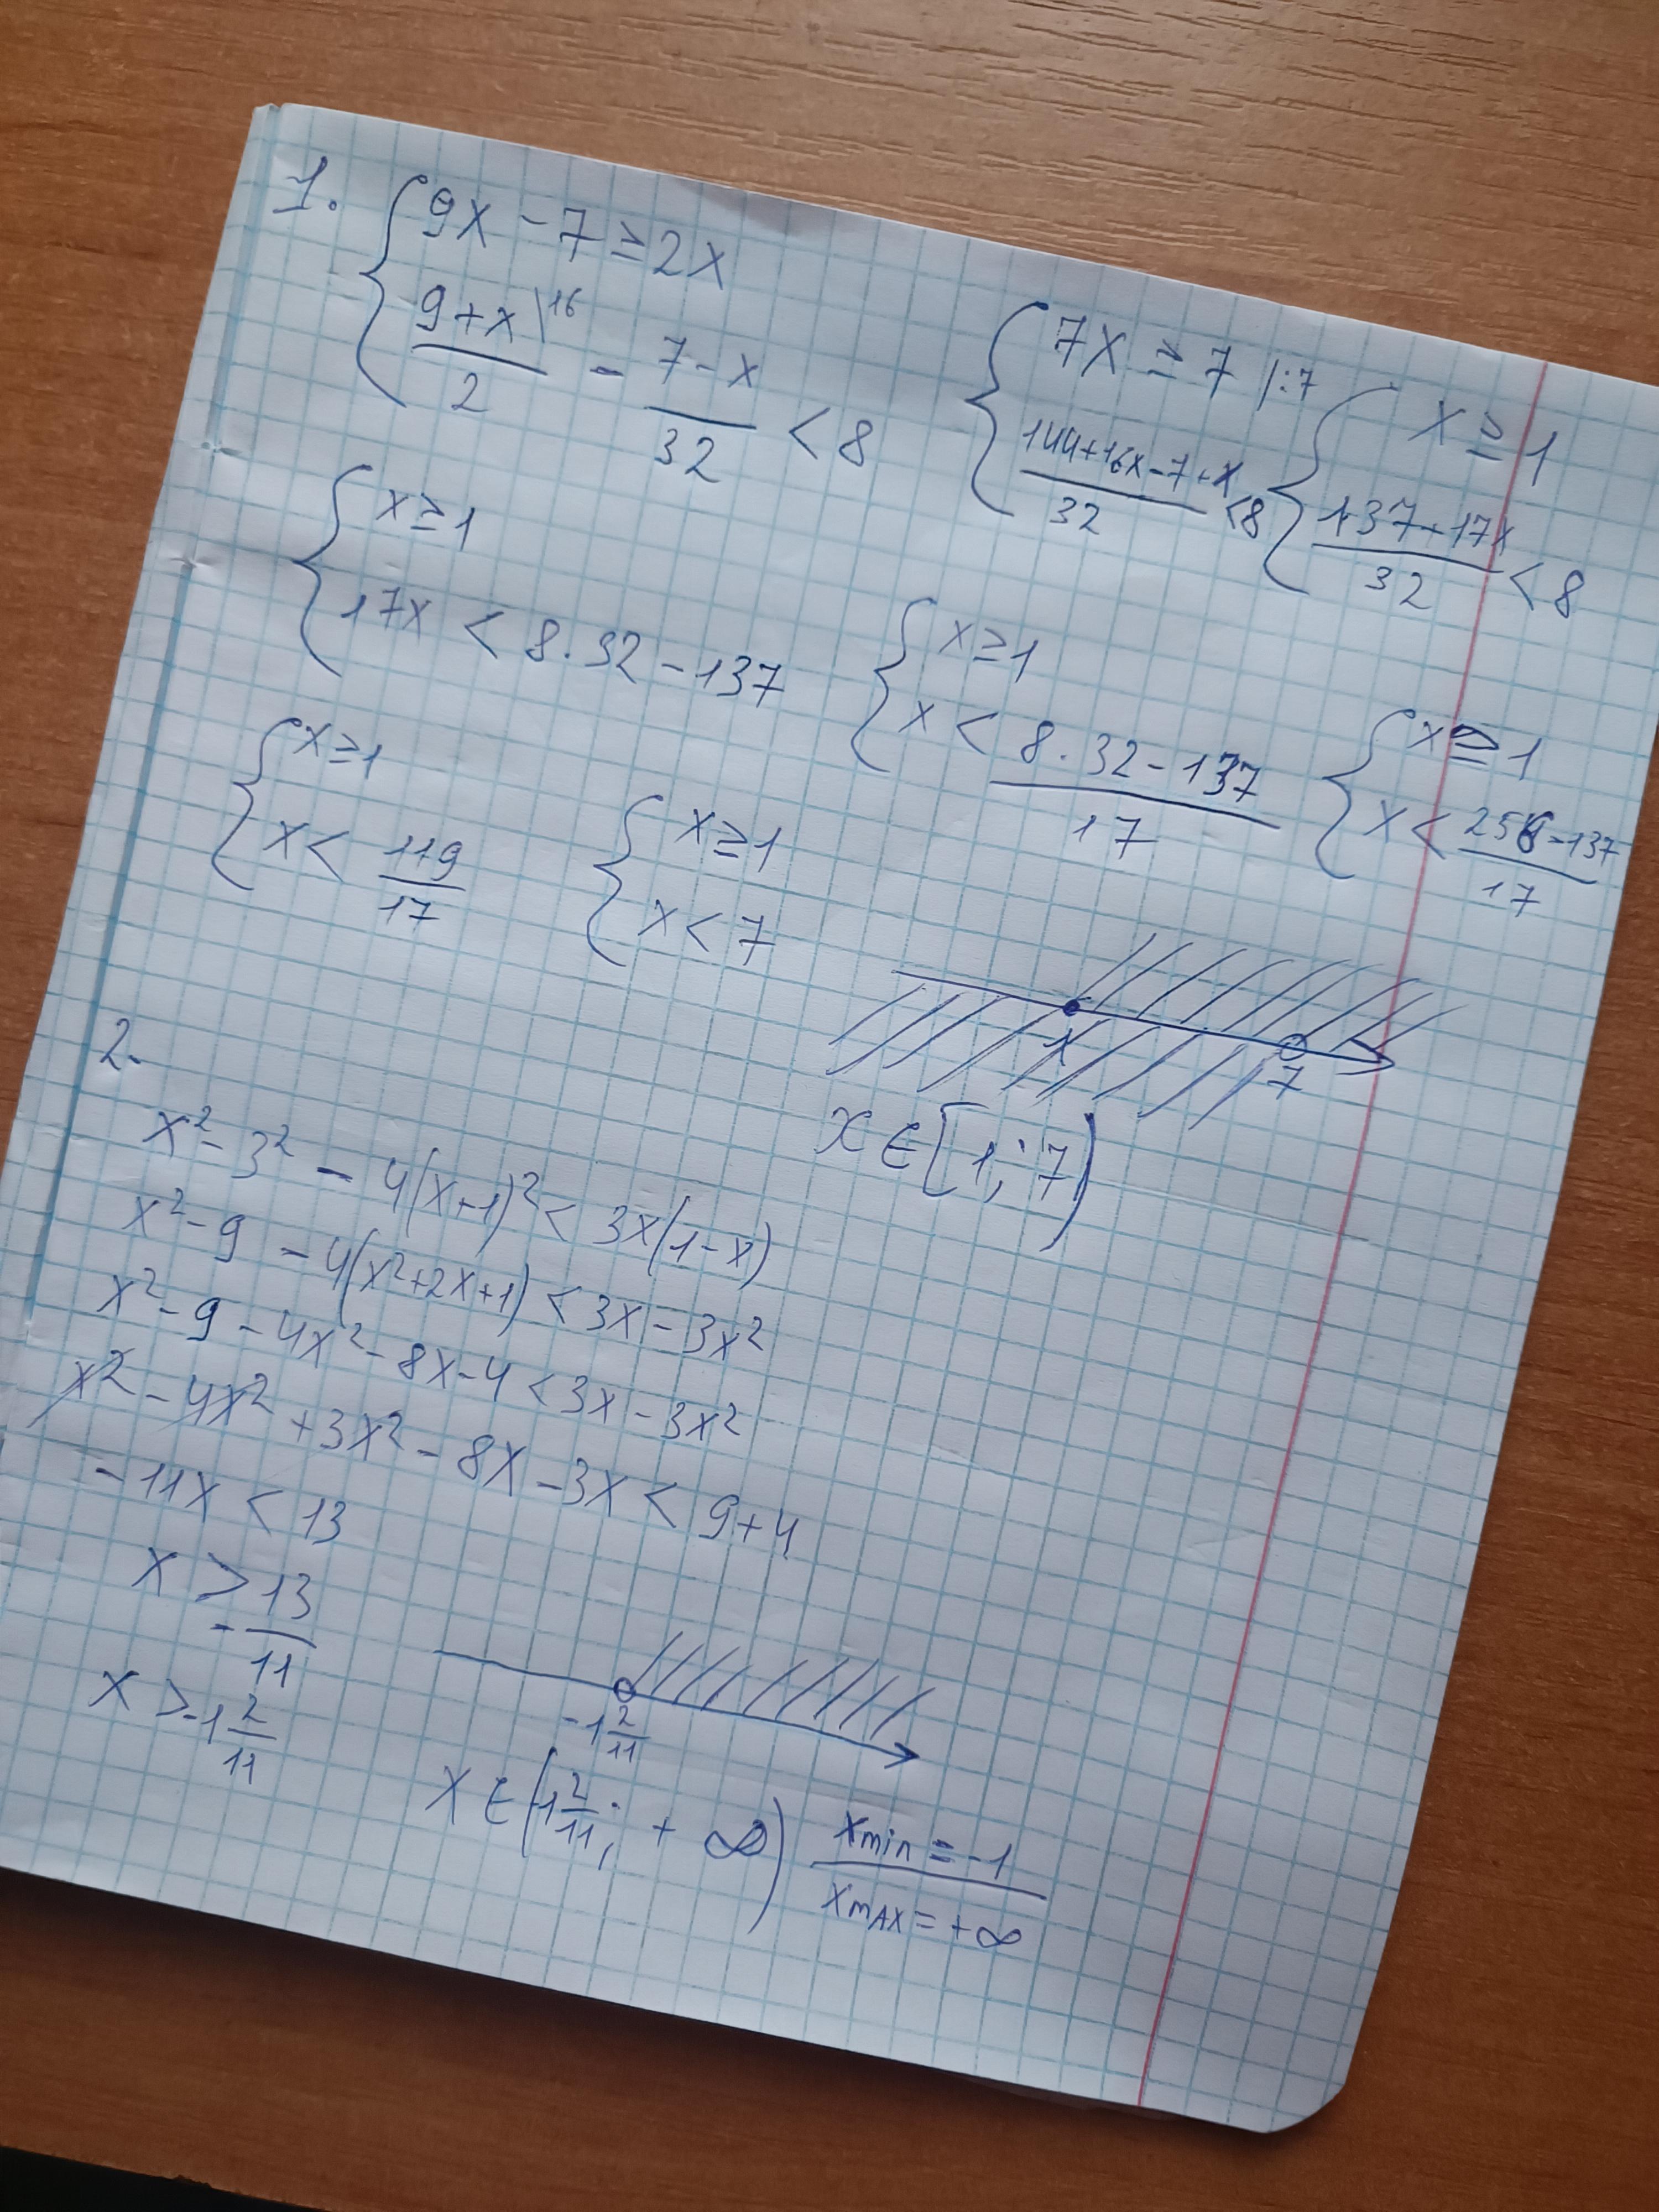 1. { 9x - 7 ≥ 2x
{ (9+x)/2 \16 - (7-x)/32 < 8
{ 7x ≥ 7 |:7
{ (144+16x-7+x)/32 < 8
{ x ≥ 1
{ (137+17x)/32 < 8
{ x ≥ 1
{ 17x < 8·32 - 137
{ x ≥ 1
{ x < (8·32 - 137)/17
{ x ≥ 1
{ x < (256-137)/17
{ x ≥ 1
{ x < 119/17
{ x ≥ 1
{ x < 7
1 7
x ∈ [1; 7)
2.
x² - 3² - 4(x+1)² < 3x(1-x)
x² - 9 - 4(x²+2x+1) < 3x - 3x²
x² - 9 - 4x² - 8x - 4 < 3x - 3x²
x² - 4x² + 3x² - 8x - 3x < 9+4
- 11x < 13
x > - 13/11
x > -1 2/11
-1 2/11
x ∈ (-1 2/11; + ∞)
xmin = -1
xMAX = +∞